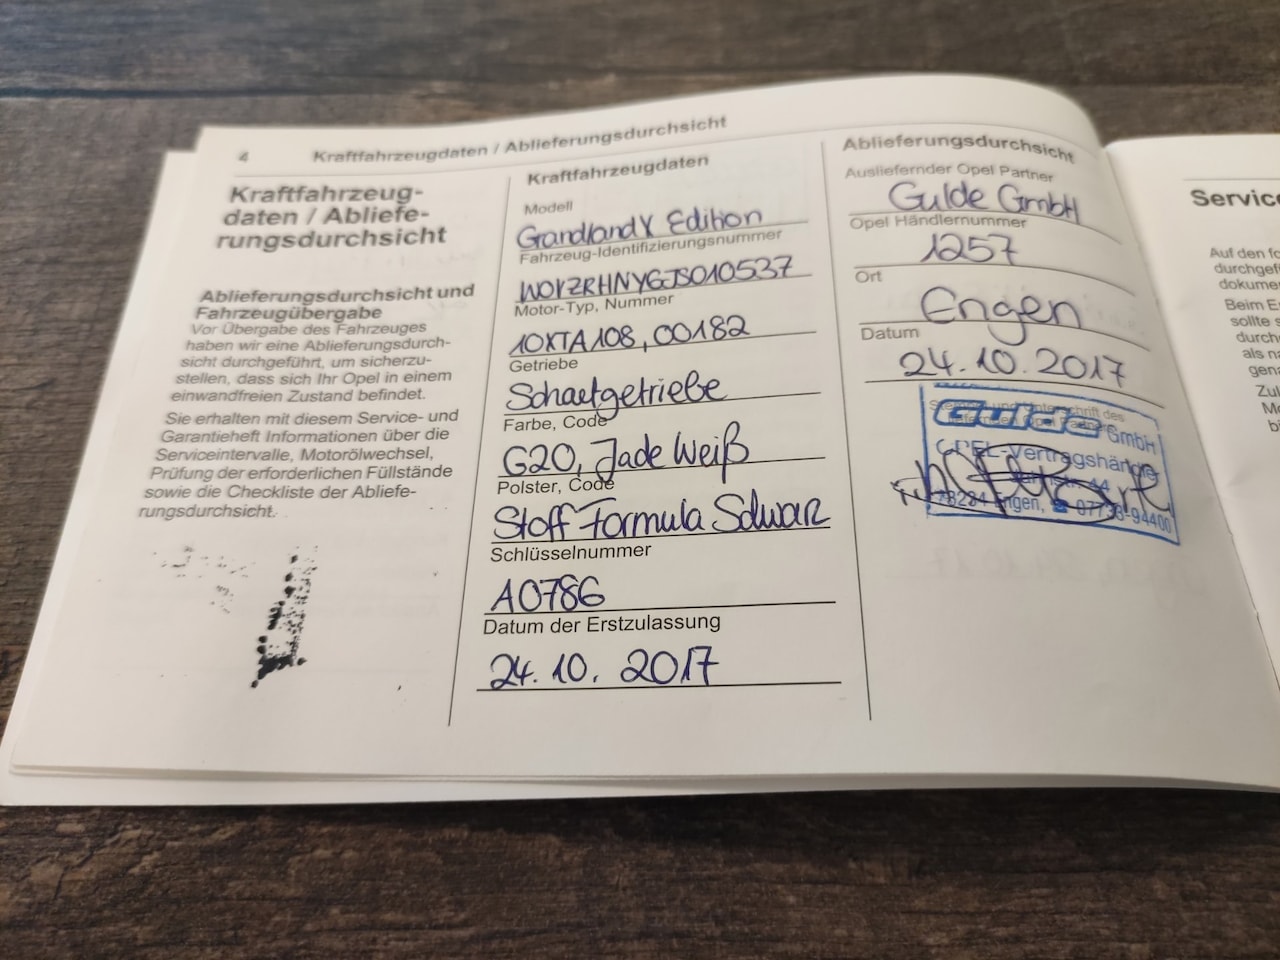 4
Kraftfahrzeugdaten / Ablieferungsdurchsicht
Kraftfahrzeug-
daten / Abliefe-
rungsdurchsicht
Ablieferungsdurchsicht und
Fahrzeugübergabe
Vor Übergabe des Fahrzeuges
haben wir eine Ablieferungsdurch-
sicht durchgeführt, um sicherzu-
stellen, dass sich Ihr Opel in einem
einwandfreien Zustand befindet.
Sie erhalten mit diesem Service- und
Garantieheft Informationen über die
Serviceintervalle, Motorölwechsel,
Prüfung der erforderlichen Füllstände
sowie die Checkliste der Abliefe-
rungsdurchsicht.
Kraftfahrzeugdaten
Modell
Grandland X Edition
Fahrzeug-Identifizierungsnummer
W0VZRHNYGJS010537
Motor-Typ, Nummer
10XTA108, 00182
Getriebe
Schaltgetriebe
Farbe, Code
G20, Jade Weiß
Polster, Code
Stoff Formula Schwarz
Schlüsselnummer
A0786
Datum der Erstzulassung
24.10. 2017
Ablieferungsdurchsicht
Ausliefernder Opel Partner
Gulde GmbH
Opel Händlernummer
1257
Ort
Engen
Datum
24.10.2017
Gulde GmbH
OPEL-Vertragshändler
78234 Engen, ☎ 07733-94400
Service
Auf den fo
durchgef
dokume
Beim E
sollte s
durch
als na
gena
Zul
M
b